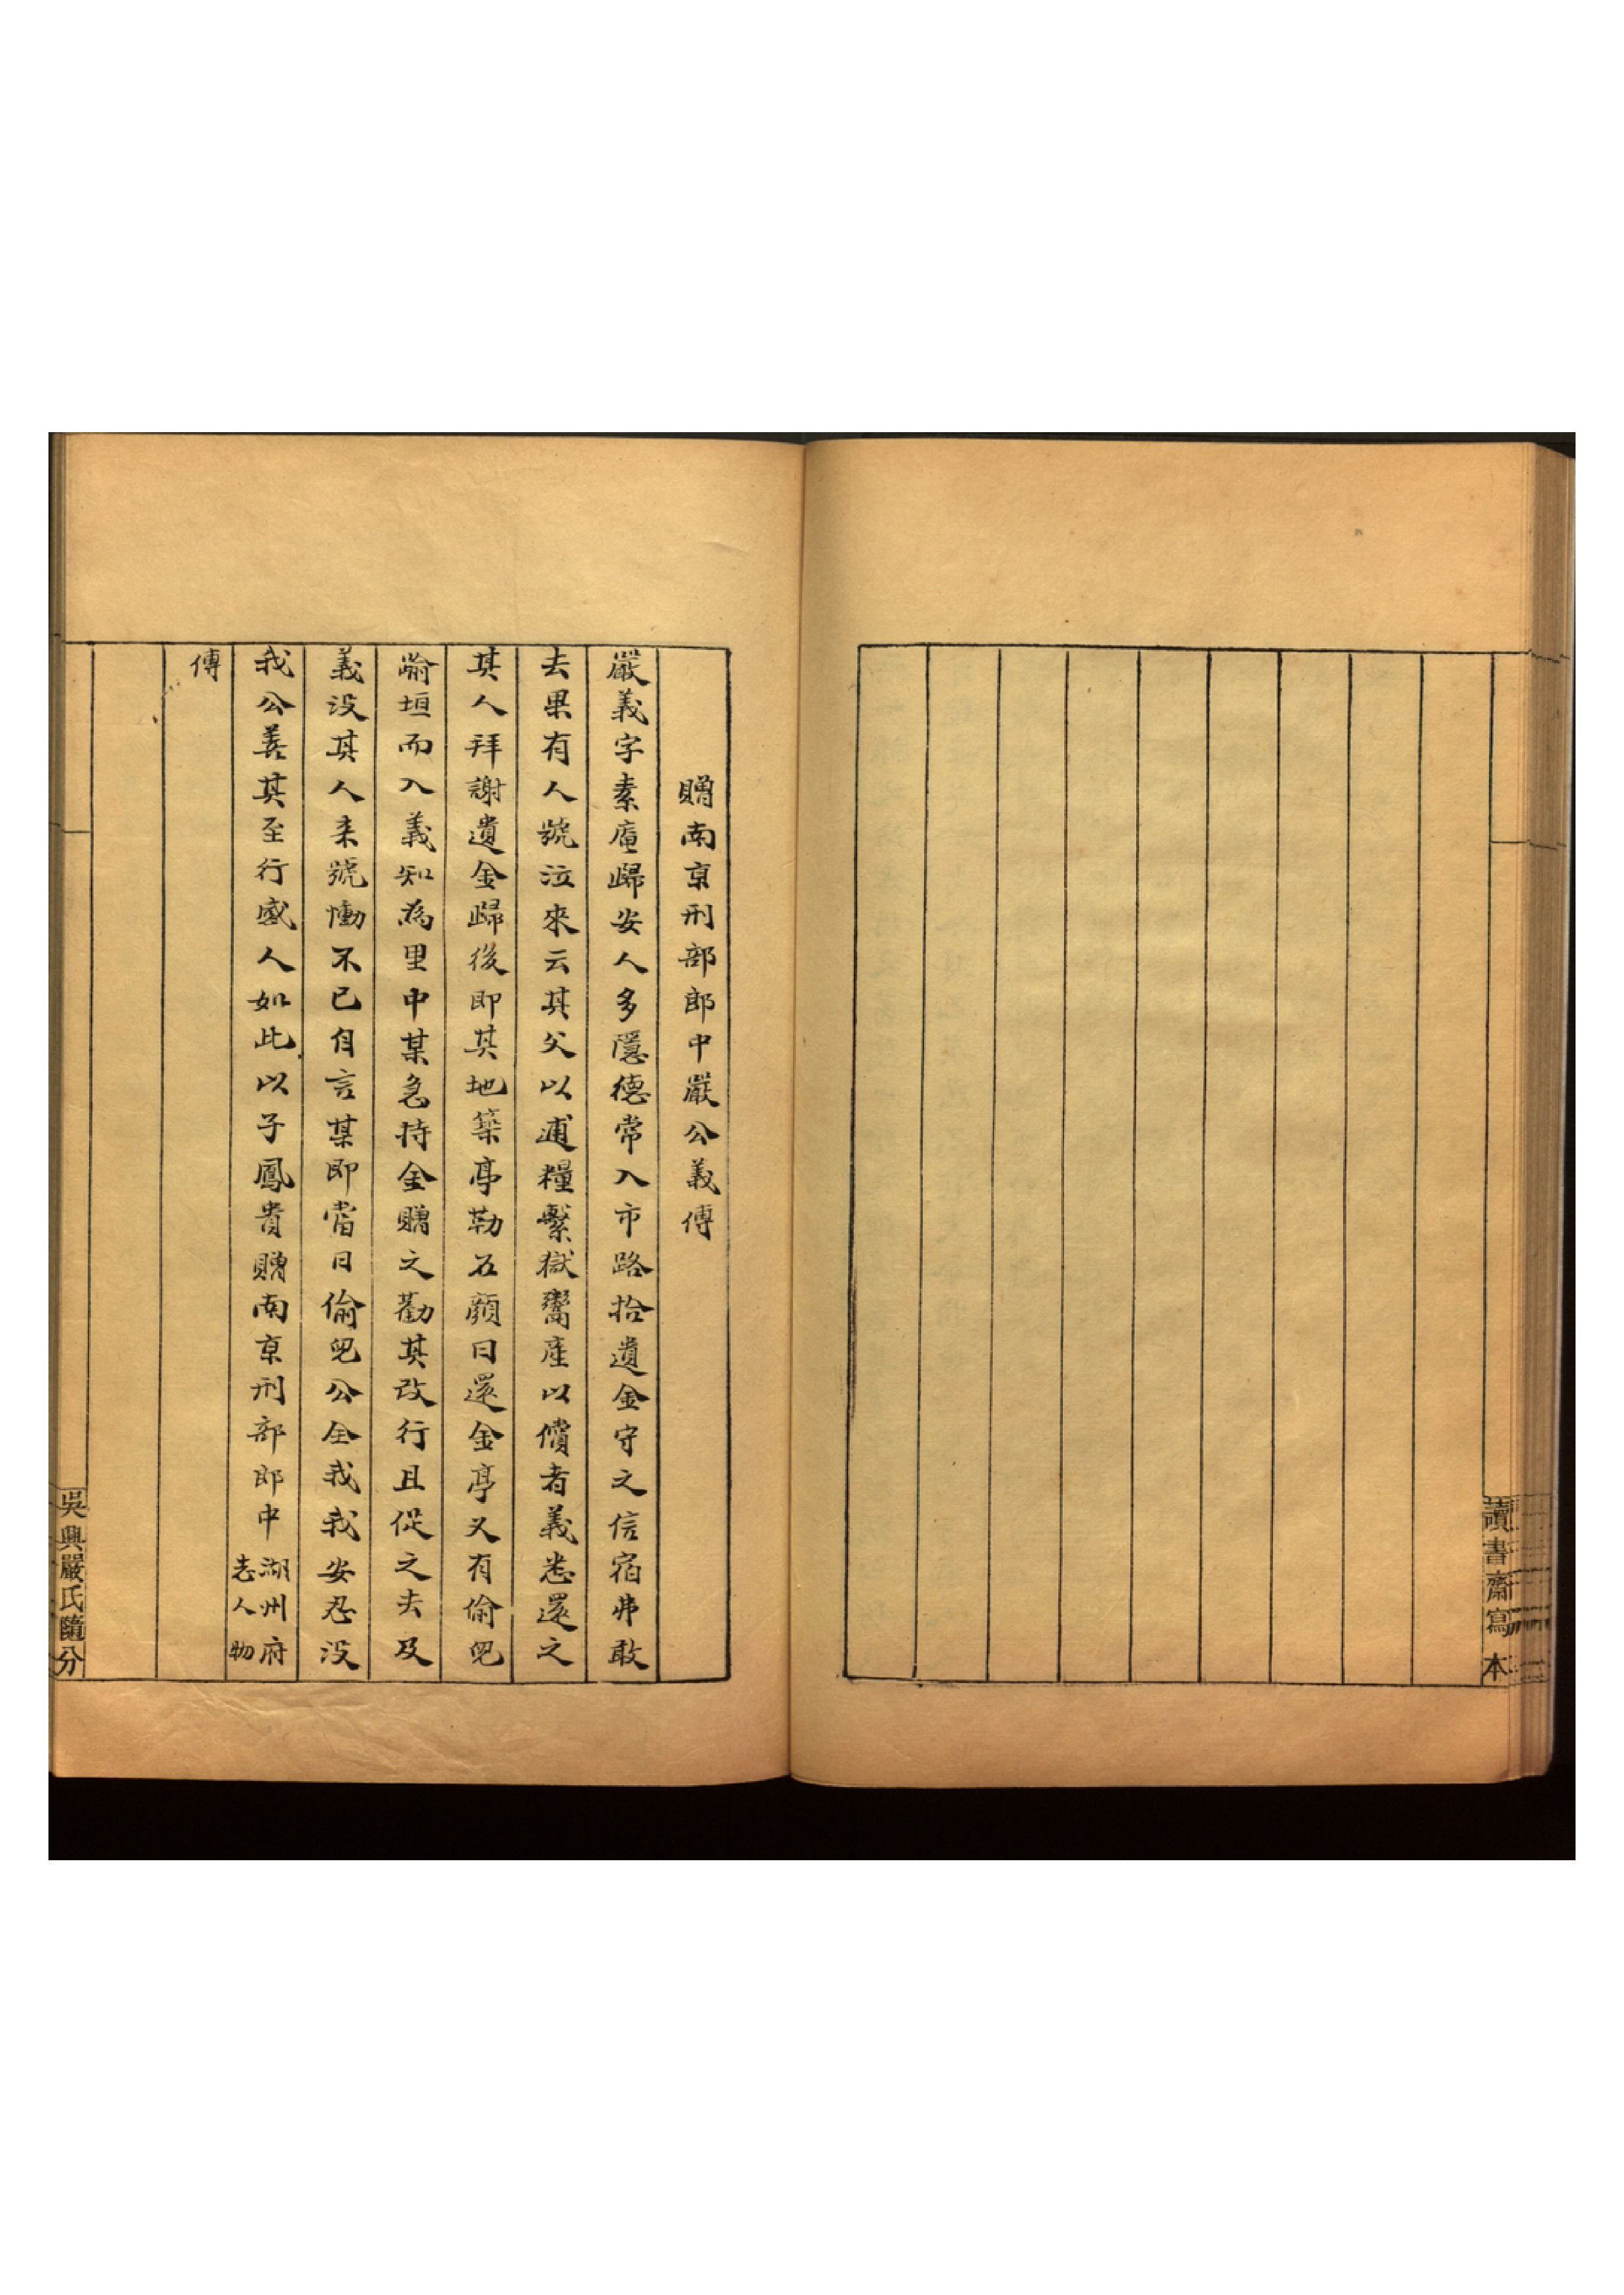 讀書齋寫本
贈南京刑部郎中嚴公義傳
嚴義字素庵歸安人多隱德常入市路拾遺金守之信宿弗敢
去果有人號泣來云其父以逋糧繫獄鬻產以償者義悉還之
其人拜謝遺金歸後即其地築亭勒石顏曰還金亭又有偷兒
踰垣而入義知為里中某急持金贈之勸其改行且從之去及
義没其人来號慟不已自言某即當日偷兒公全我我安忍没
我公義其至行感人如此以子鳳貴贈南京刑部郎中湖州府志人物
傳
吳興嚴氏隨分